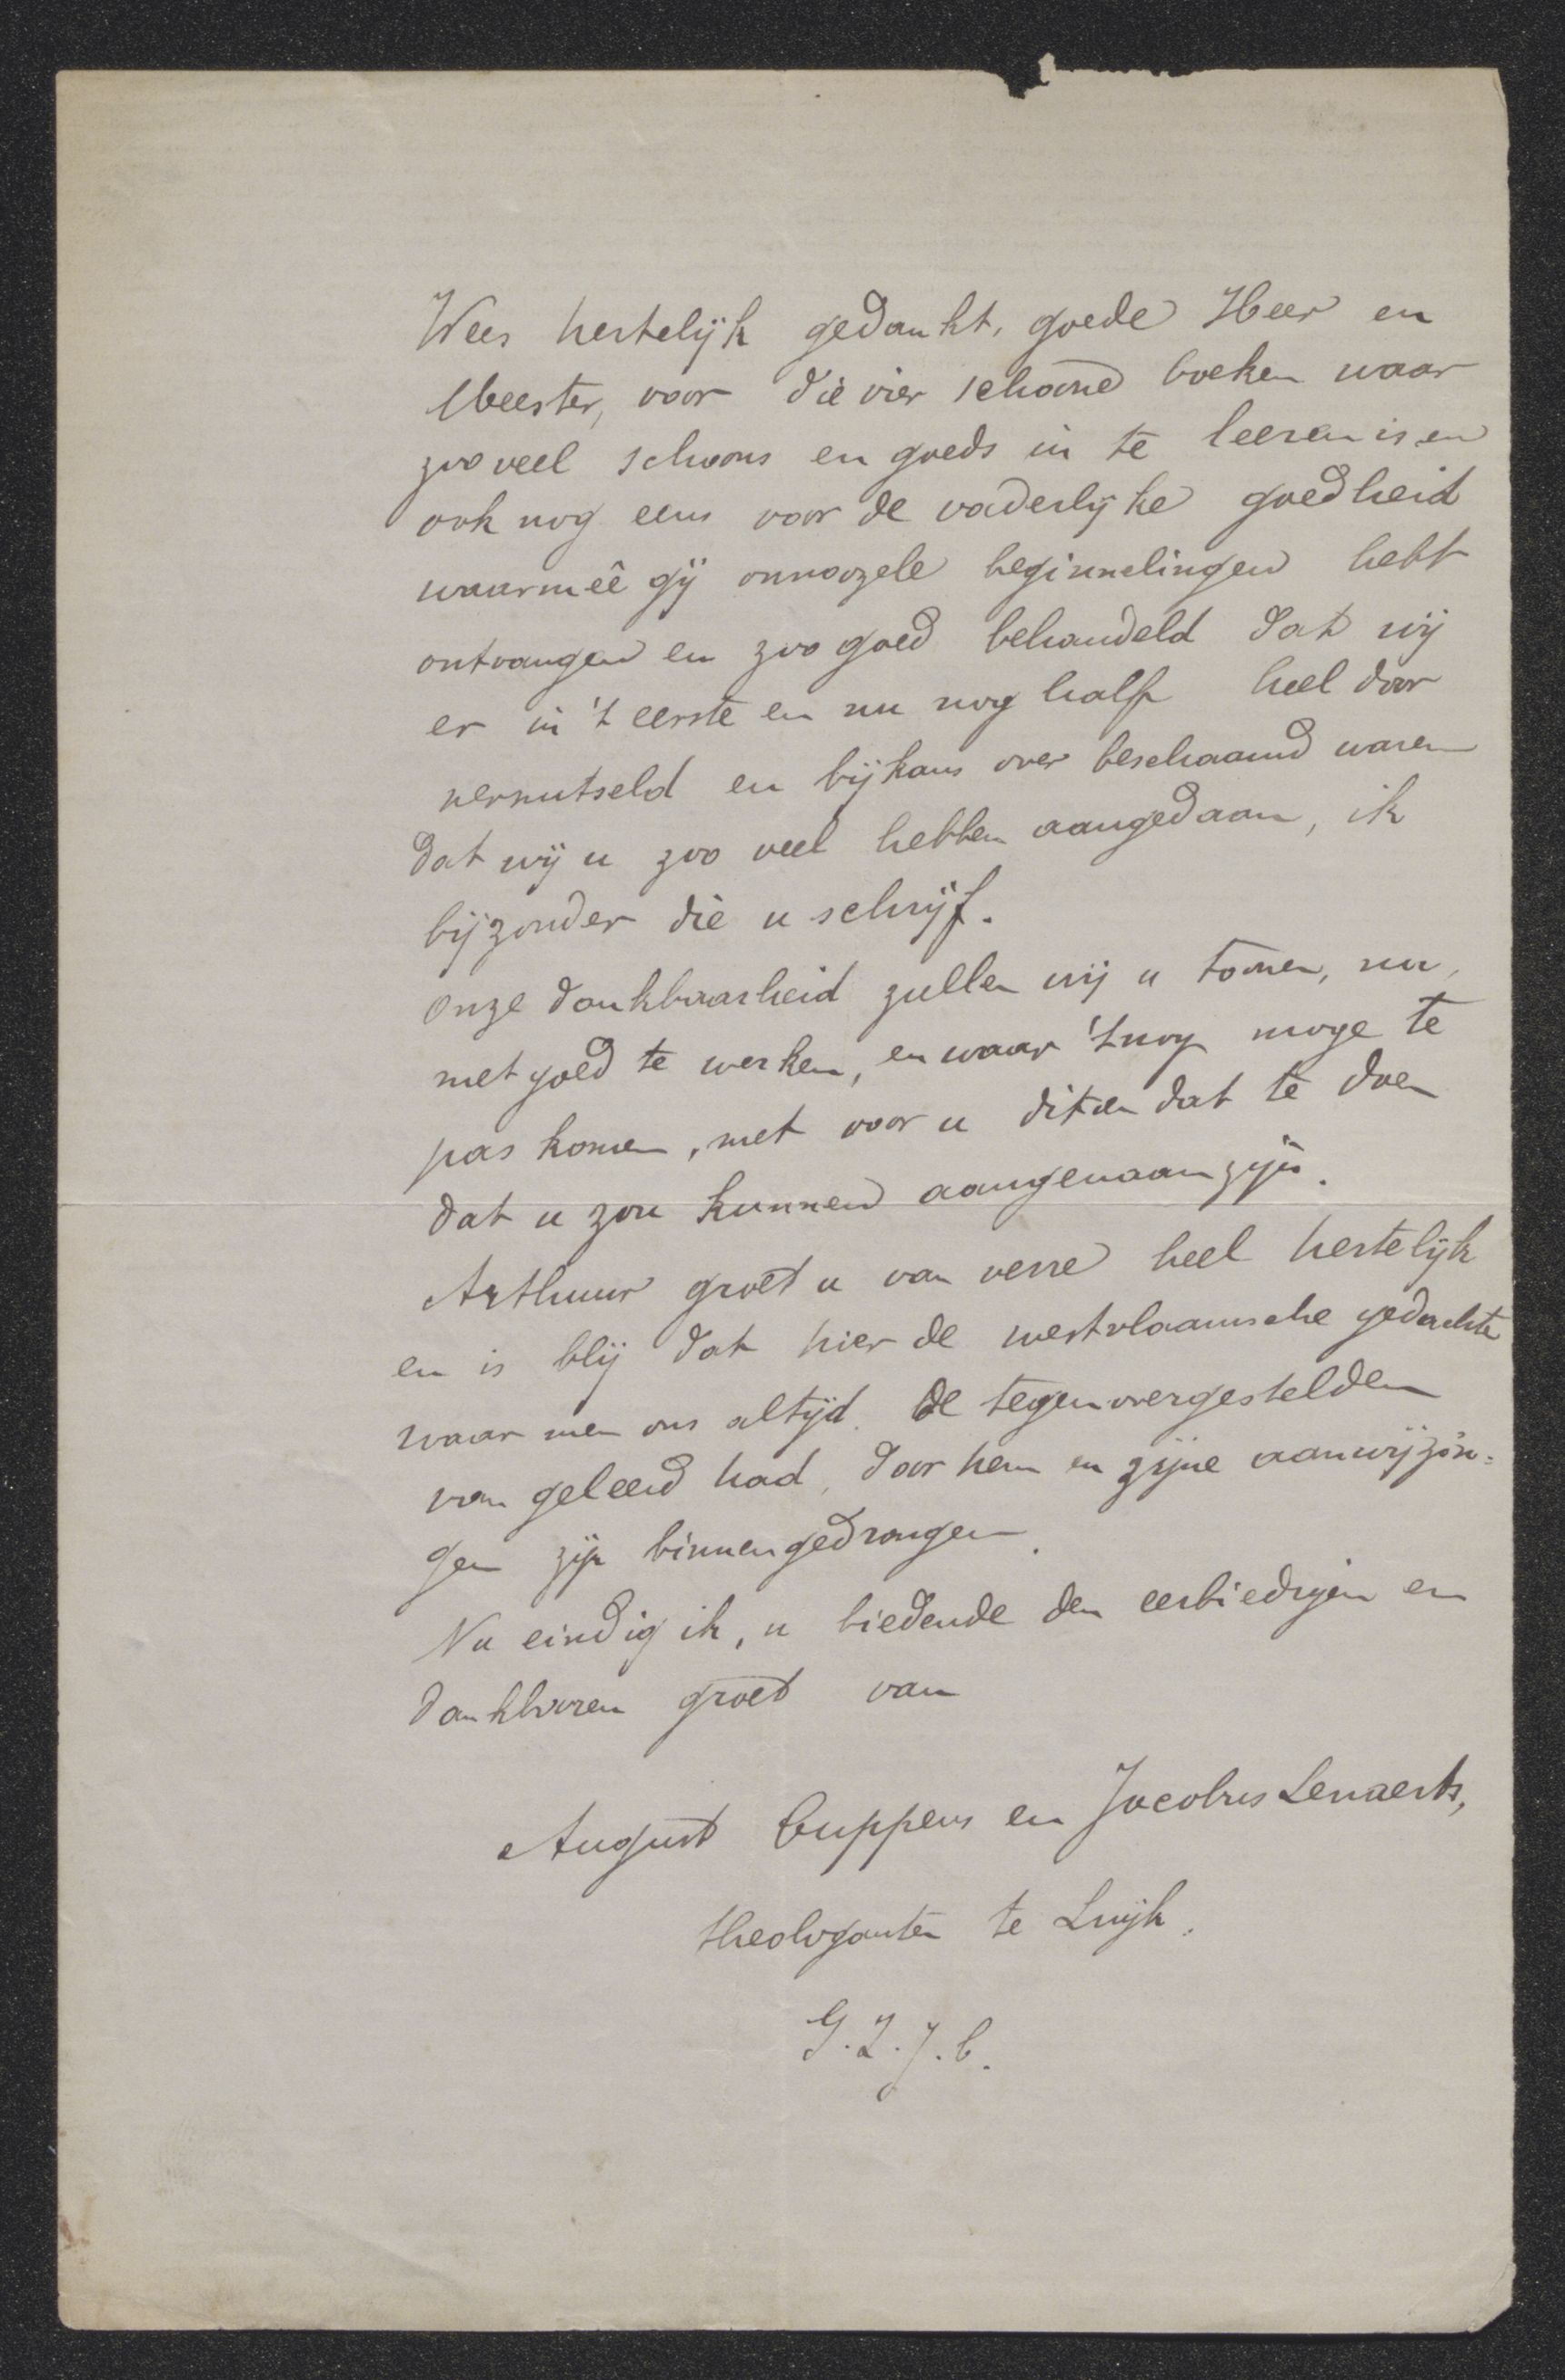 Wees hertelijk gedankt, goede Heer en
Meester, voor die vier schoone boeken waar
zoo veel schoons en goeds in te leeren is en
ook nog eens voor de vaderlijke goedheid
waarmeê gij onnoozele beginnelingen hebt
ontvangen en zoo goed behandeld dat wij
er in 't eerste en nu nog half heel door
vernutseld en bijkans over beschaamd waren
dat wij u zoo veel hebben aangedaan, ik
bijzonder die u schrijf.
Onze dankbaarheid zullen wij u toonen, nu,
met goed te werken, en waar 't nog moge te
pas komen, met voor u dit en dat te doen
dat u zou kunnen aangenaam zijn.
Arthuur groet u van verre heel hertelijk
en is blij dat hier de westvlaamsche gedachte
waar men ons altijd de tegenovergestelden
van geleerd had, door hem en zijne aanwijzin=
gen zijn binnengedrongen.
Nu eindig ik, u biedende den eerbiedigen en
dankbaren groet van
August Cuppens en Jacobus Lenaerts,
theologanten te Luijk.
G. Z. J. C.